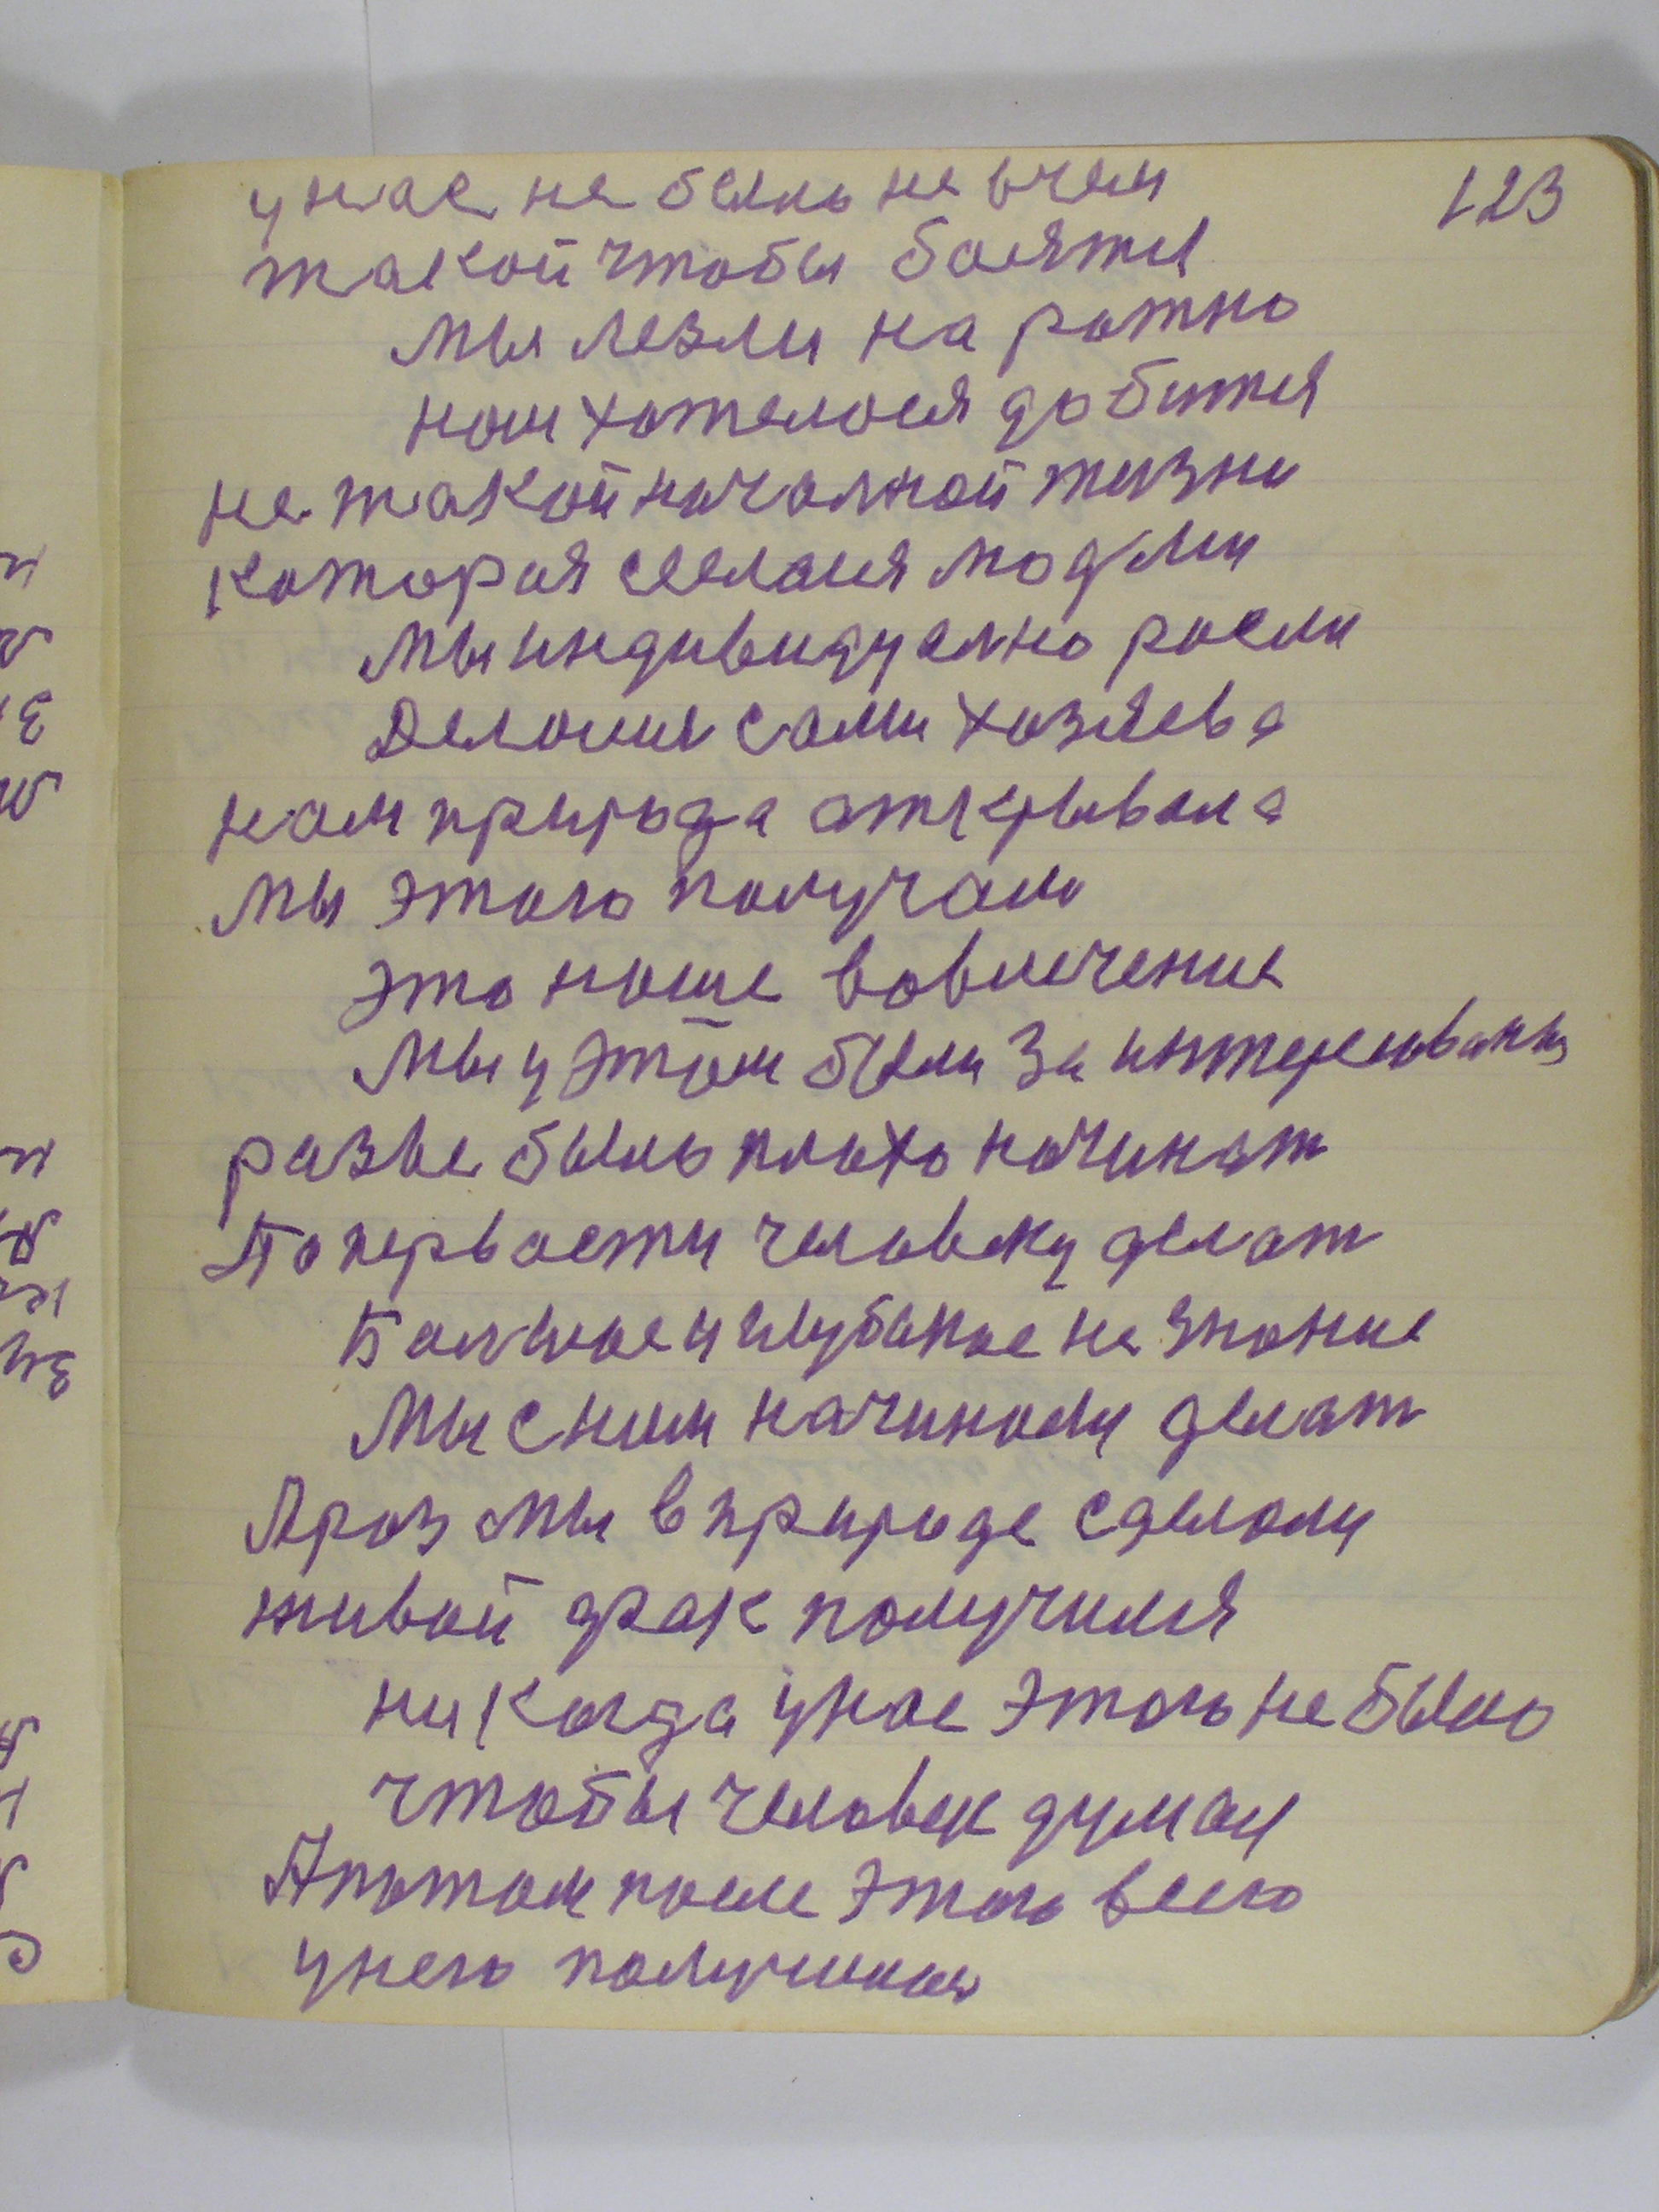 123
у нас не было не вчем
такой чтобы боятся
мы лезли на ратно
нам хотелося добится
не такой началной жизни
которая сеелася людми
мы индивидуално расли
Делалися сами хозяева
нам природа открывала
мы этого получали
это наше вовлечение
мы у этом были за интересованы
разве было плохо начинат
По первости человеку делат
Балшое и глубокое не знание
мы с ним начинали делат
А раз мы в природе сделали
живой фак получился
ни когда у нас этого не было
чтобы человек думал
А потом после этого всего
у него получилося